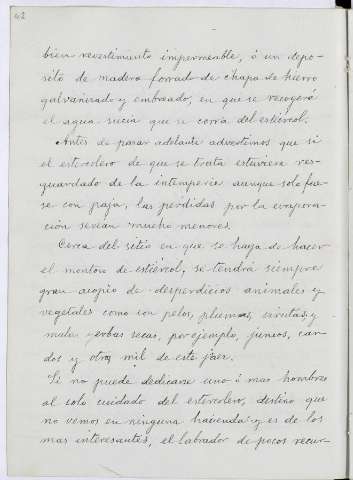 42
bien revestimiento impermeable, ó un depo-
sito de madera forrado de chapa de hierro
galvanizado y embreado, en que se recogerá
el agua sucia que se corra del estiércol.
Antes de pasar adelante advertimos que si
el estercolero de que se trata estuviera res-
guardado de la intemperie aunque solo fue-
se con paja, las perdidas por la evapora-
ción serian mucho menores.
Cerca del sitio en que se haya de hacer
el monton de estiércol, se tendrá siempre
gran acopio de desperdicios animales y
vegetales como son pelos, plumas, virutas, y
malas yerbas secas, por ejemplo, juncos, car-
dos y otros mil de este jaez.
Si no puede dedicarse uno ó mas hombres
al solo cuidado del estercolero, destino que
no vemos en ninguna hacienda y es de los
mas interesantes, el labrador de pocos recur-